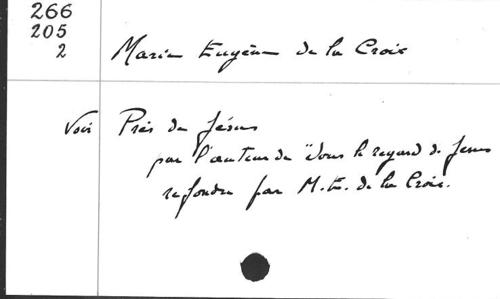 266
205
2 Marie Eugène de la Croix
Voir Près de Jésus
par l'auteur de "Sous le regard de Jesus
refondu par M.E. de la Croix.